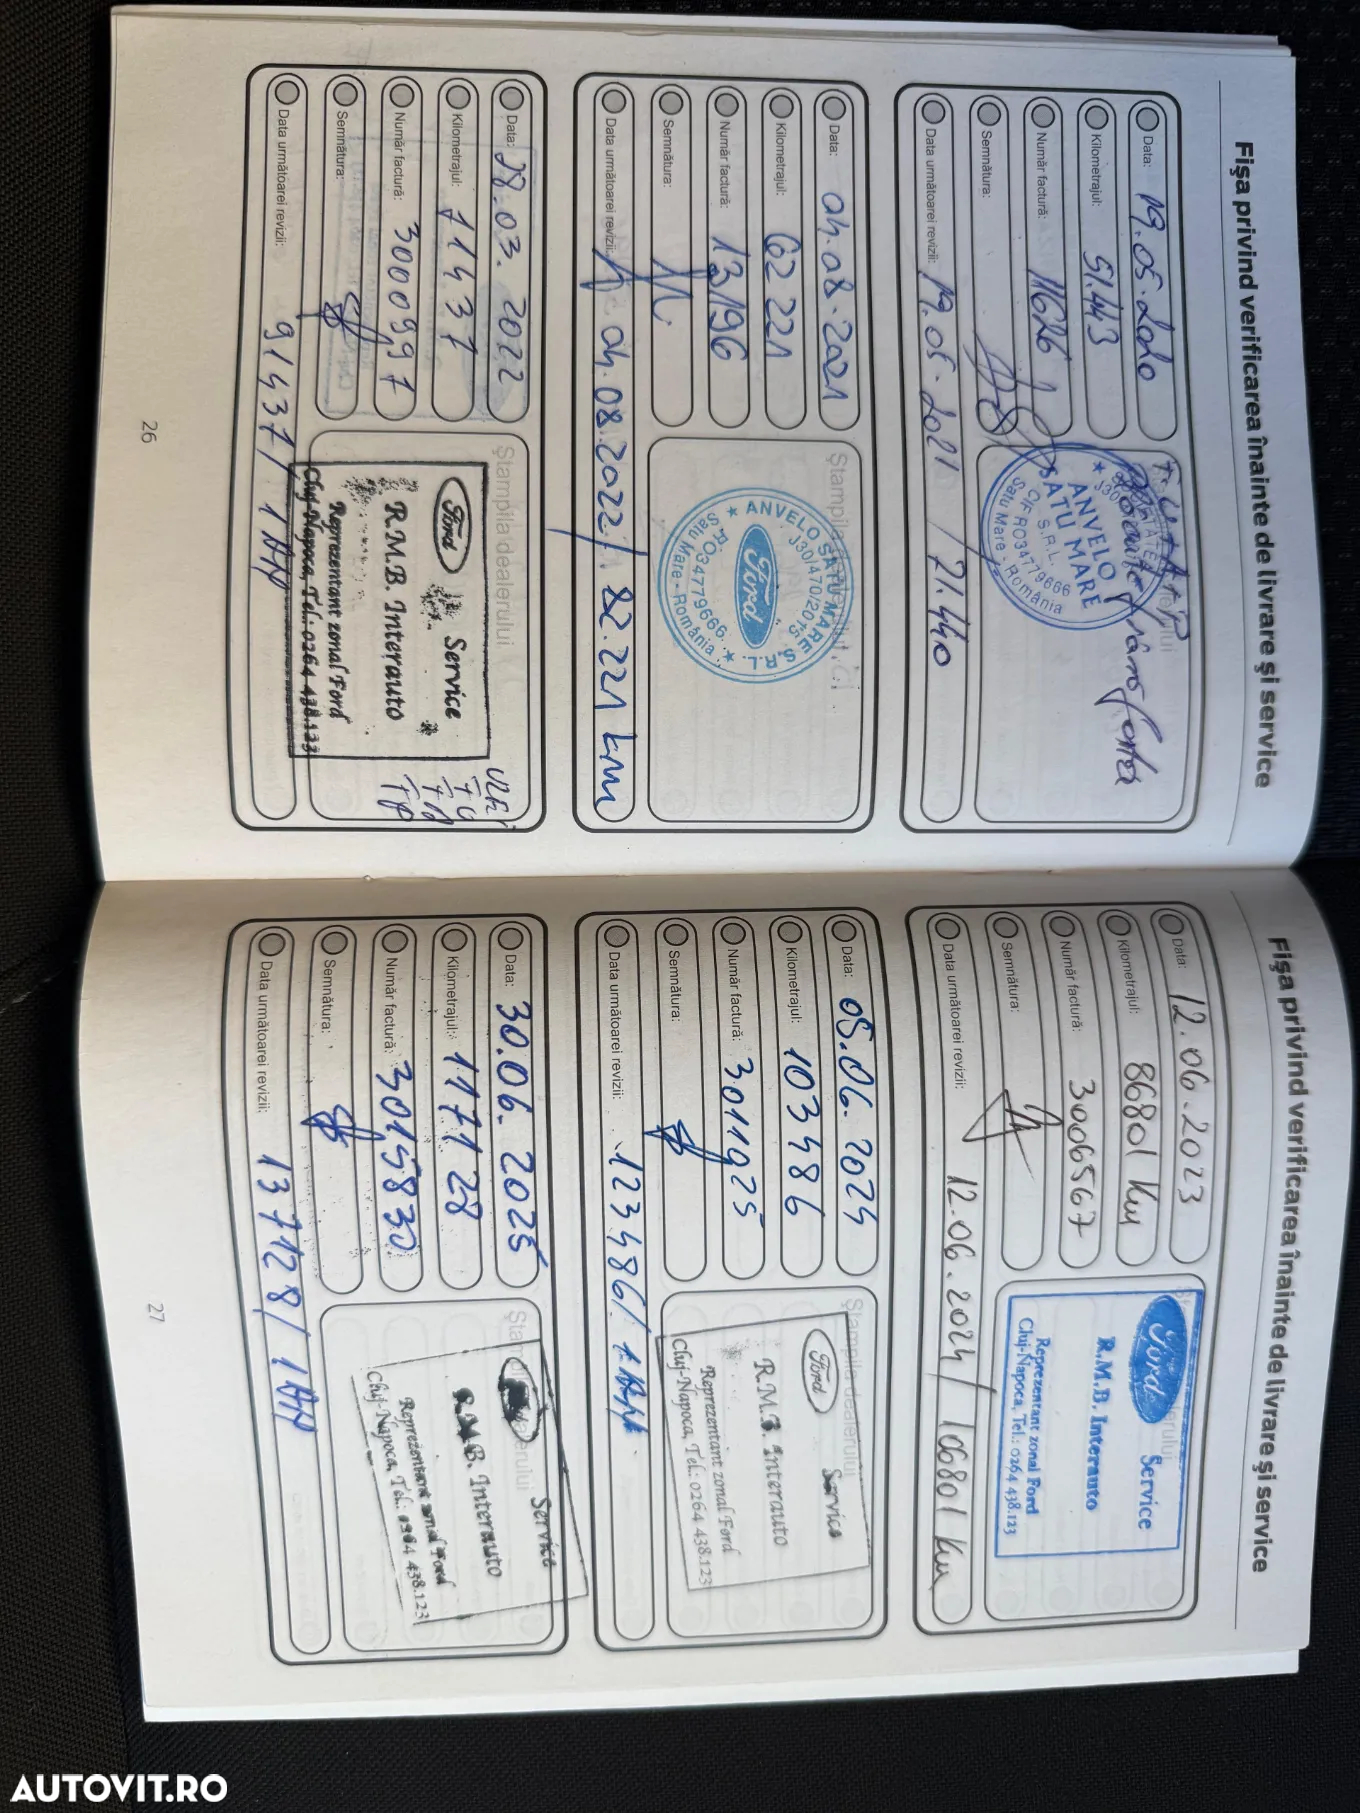 Fişa privind verificarea înainte de livrare şi service
Data: 19.05.2020
Kilometrajul: 51.443
Număr factură: 11626
Semnătura:
ANVELO
SATU MARE
S.R.L.
CIF RO34779666
Satu Mare - România
Data următoarei revizii: 19.05.2021 / 71.440
Data: 04.08.2021
Kilometrajul: 62 221
Număr factură: 13196
Semnătura:
Ştampila dealerului
ANVELO SATU MARE S.R.L.
J30/470/2015
Ford
RO34779666
Satu Mare - România
Data următoarei revizii: 04.08.2022 / 82.221 km
Data: 28.03.2022
Kilometrajul: 71437
Număr factură: 3000997
Semnătura:
Ştampila dealerului
Ford Service
R.M.B. Interauto
Reprezentant zonal Ford
Cluj-Napoca, Tel.: 0264 438.123
Data următoarei revizii: 91437 / 1 AN
26
Fişa privind verificarea înainte de livrare şi service
Data: 12.06.2023
Kilometrajul: 86801 km
Număr factură: 3006567
Semnătura:
Ford Service
R.M.B. Interauto
Reprezentant zonal Ford
Cluj-Napoca, Tel.: 0264 438.123
Data următoarei revizii: 12.06.2024 / 106801 km
Data: 05.06.2024
Kilometrajul: 103486
Număr factură: 3011925
Semnătura:
Ştampila dealerului
Ford Service
R.M.B. Interauto
Reprezentant zonal Ford
Cluj-Napoca, Tel.: 0264 438.123
Data următoarei revizii: 123486 / 1 AN
Data: 30.06.2025
Kilometrajul: 117128
Număr factură: 3015830
Semnătura:
Service
R.M.B. Interauto
Reprezentant zonal Ford
Cluj-Napoca, Tel.: 0264 438.123
Data următoarei revizii: 137128 / 1 AN
27
AUTOVIT.RO